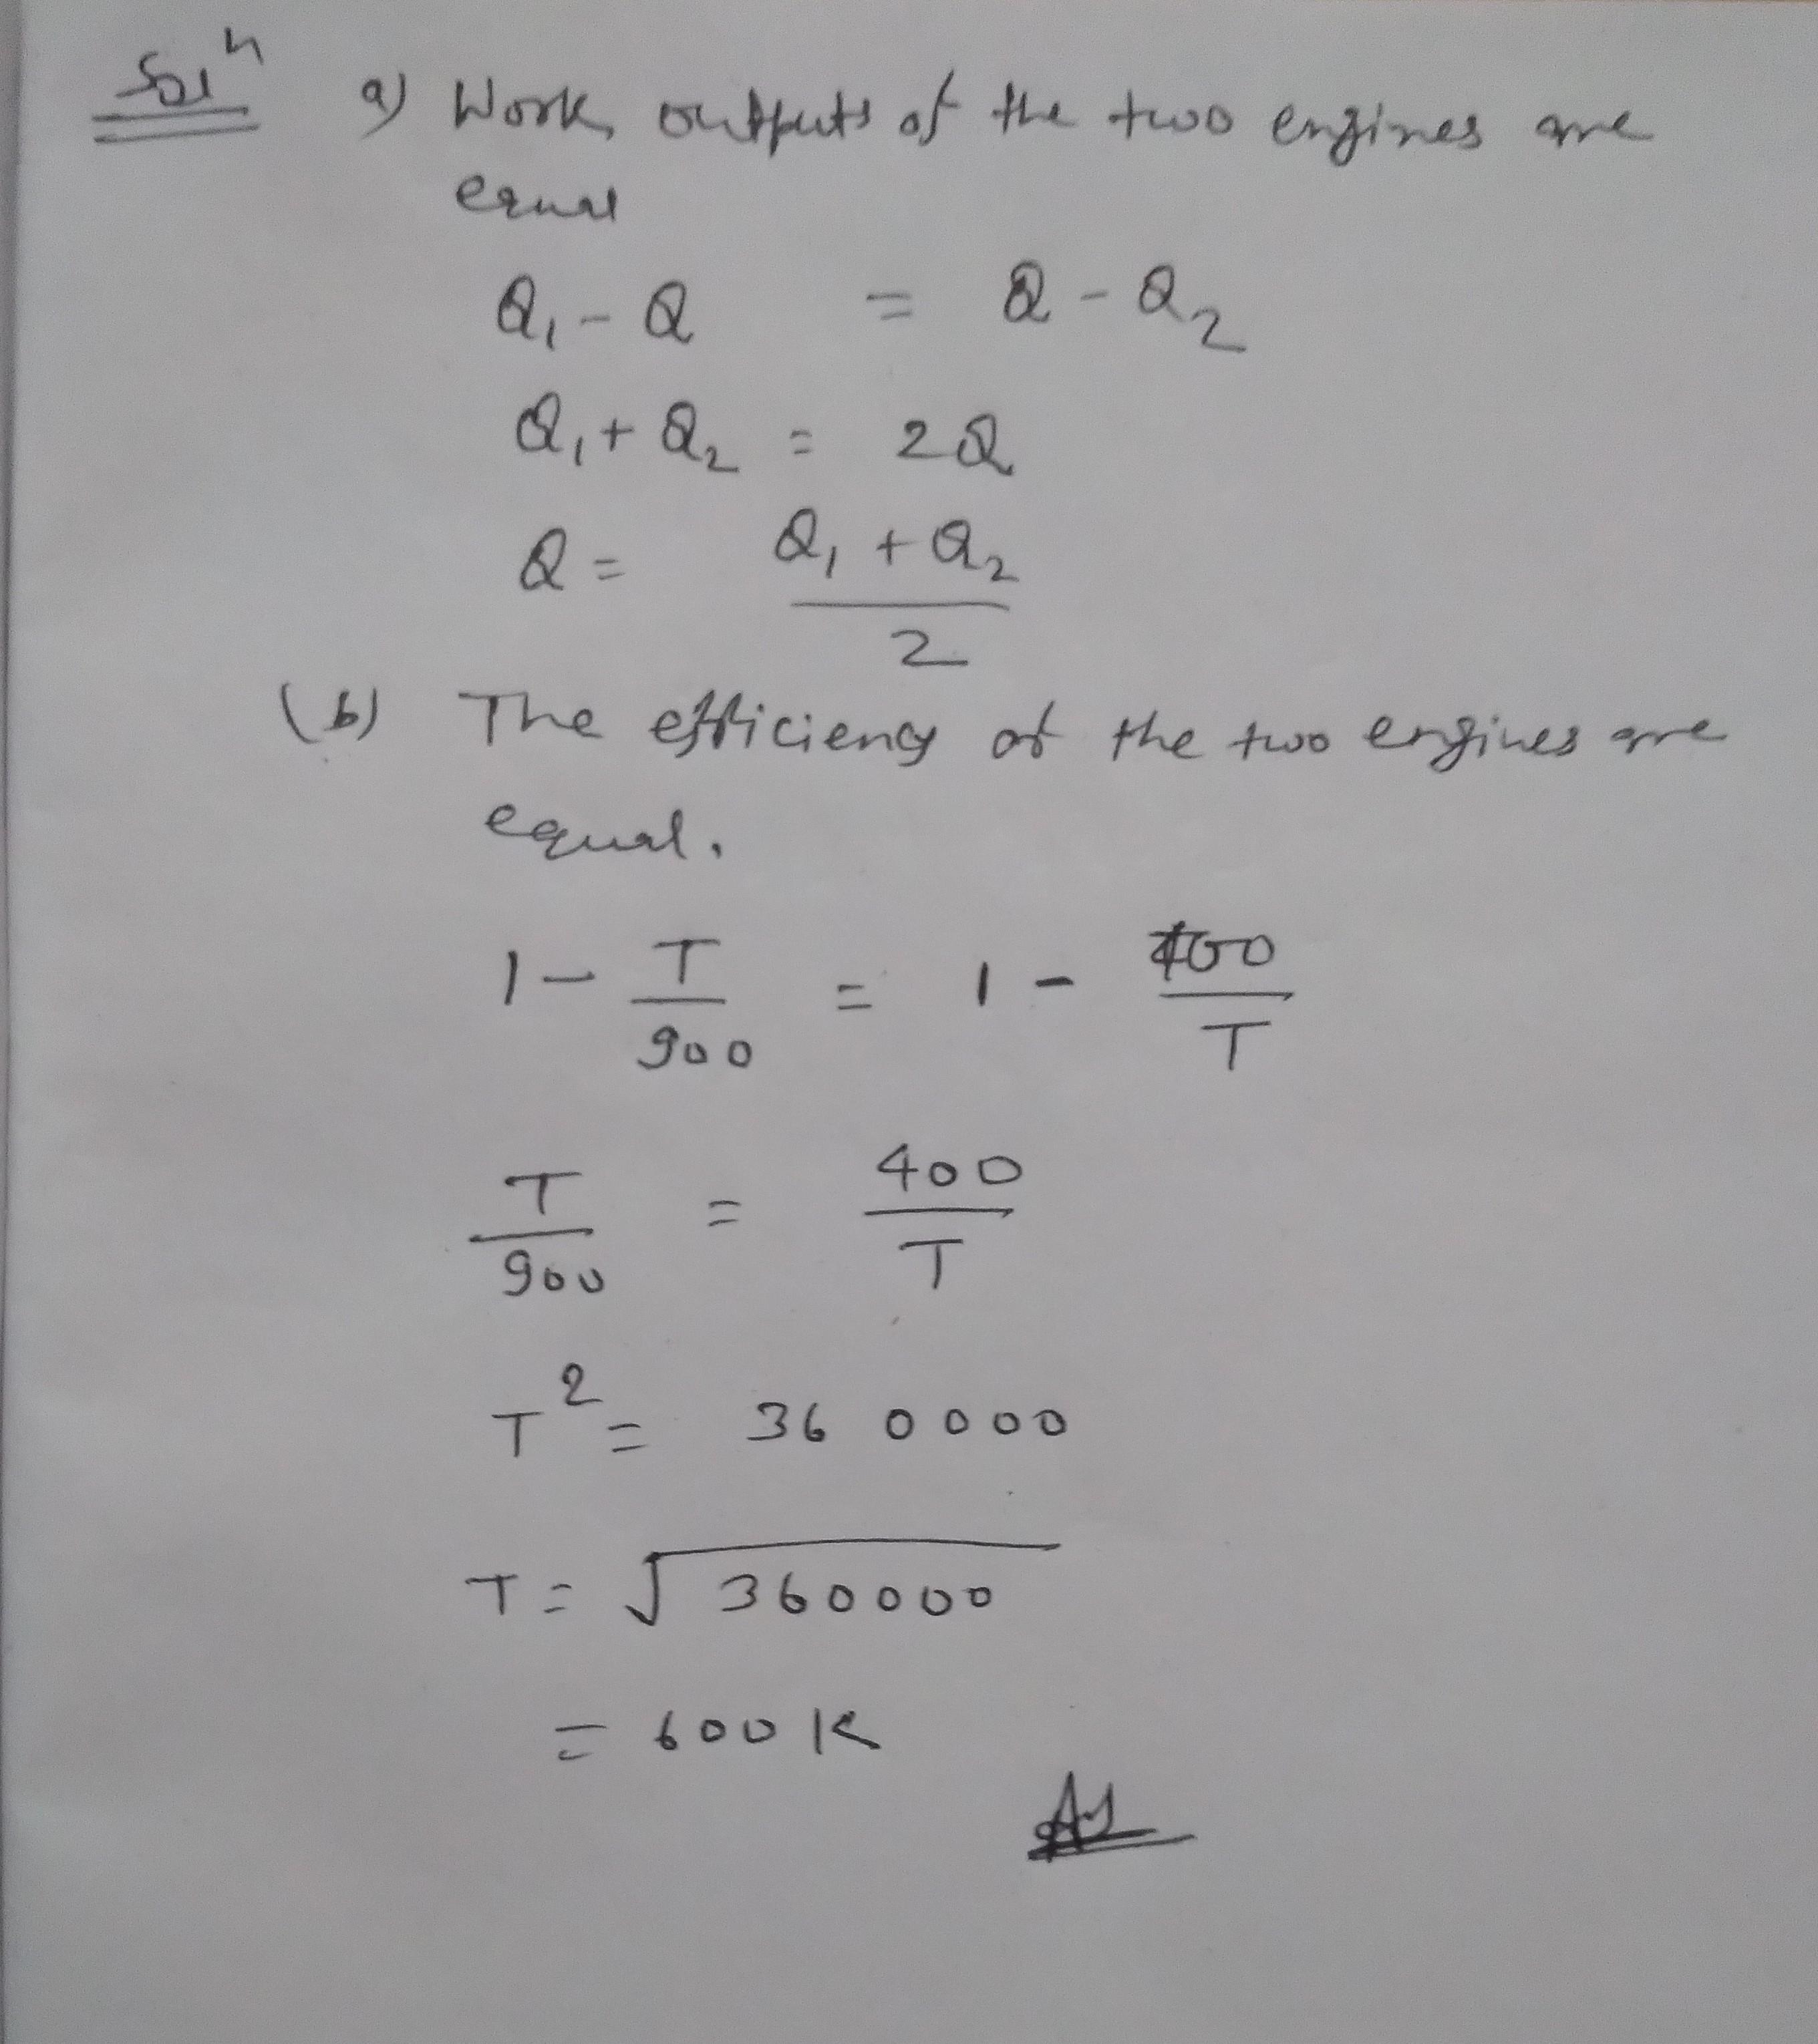 Solⁿ a) Work outputs of the two engines are
equal
Q₁ - Q = Q - Q₂
Q₁ + Q₂ = 2Q
Q = Q₁ + Q₂
2
(b) The efficiency of the two engines are
equal.
1 - T/900 = 1 - 400/T
T/900 = 400/T
T² = 360000
T = √360000
= 600 K